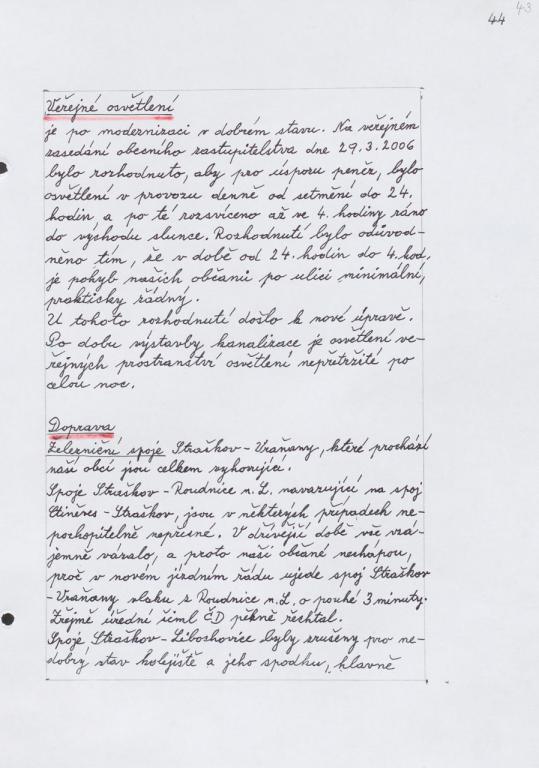 43
44
Veřejné osvětlení
je po modernizaci v dobrém stavu. Na veřejném
zasedání obecního zastupitelstva dne 29.3.2006
bylo rozhodnuto, aby pro úsporu peněz, bylo
osvětlení v provozu denně od setmění do 24.
hodin a po té rozsvíceno až ve 4. hodiny ráno
do východu slunce. Rozhodnutí bylo odůvod-
něno tím, že v době od 24. hodin do 4. hod.
je pohyb našich občanů po ulici minimální,
prakticky žádný.
U tohoto rozhodnutí došlo k nové úpravě.
Po dobu výstavby kanalizace je osvětlení ve-
řejných prostranství osvětlení nepřetržité po
celou noc.
Doprava
Železniční spoje Straškov - Vraňany, které prochází
naší obcí jsou celkem vyhovující.
Spoje Straškov - Roudnice n. L. navazující na spoj
Ctiněves - Straškov, jsou v některých případech ne-
pochopitelně nepřesné. V dřívější době vše vzá-
jemně vázalo, a proto naši občané nechápou,
proč v novém jízdním řádu ujede spoj Straškov
- Vraňany vlaku z Roudnice n. L. o pouhé 3 minuty.
Zřejmě úřední šiml ČD pěkně řechtal.
Spoje Straškov - Libochovice byly zrušeny pro ne-
dobrý stav kolejiště a jeho spodku, hlavně